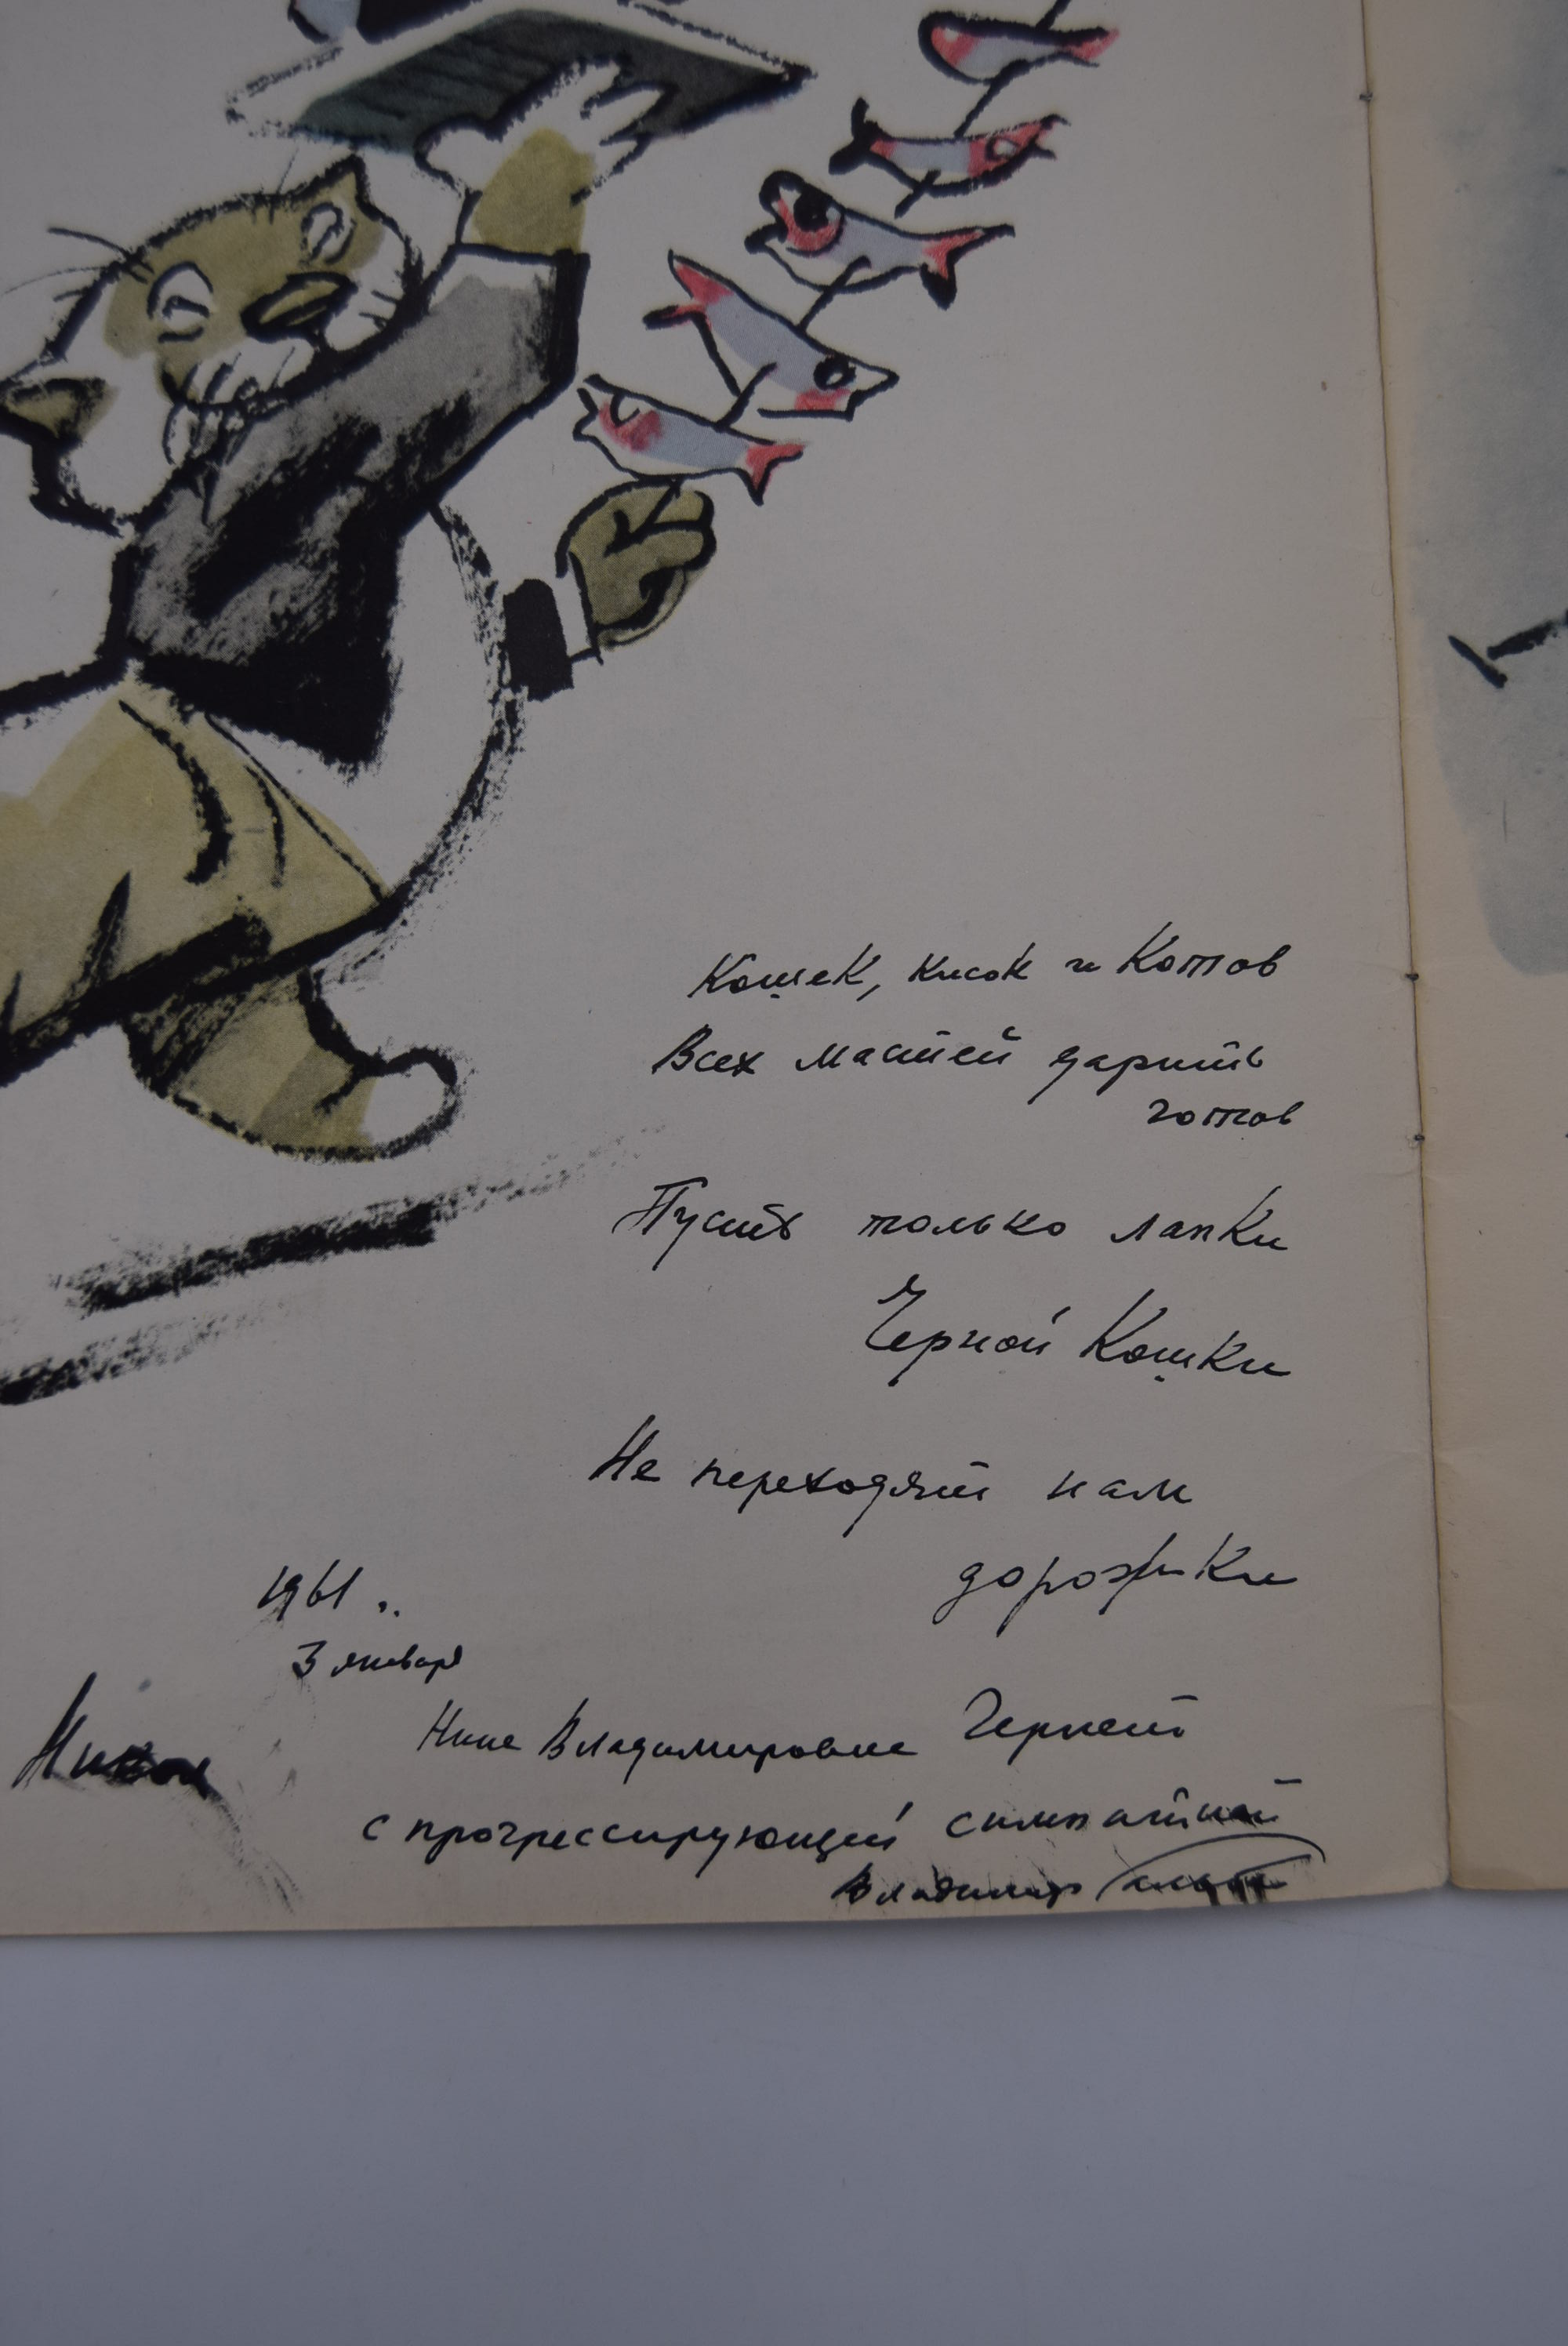 Кошек, кисок и Котов
Всех мастей дарить
готов
Пусть только лапки
Черной Кошки
Не переходят нам
дорожки
1961..
3 января
Нине Владимировне Гернет
с прогрессирующей симпатией
Владимир